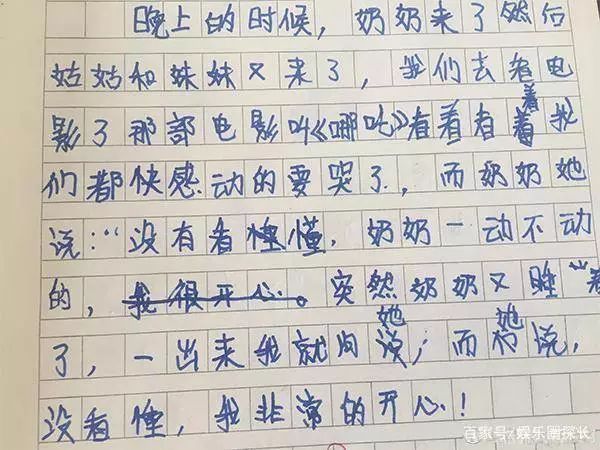 晚上的时候，奶奶来了然后
姑姑和妹妹又来了，我们去看电
影了那部电影叫《哪吒》看着看着我
们都快感动的要哭了，而奶奶她
说：“没有看懂懂，奶奶一动不动
的，我很开心。突然奶奶又睡”着
了，一出来我就问她说；而她说，
没看懂，我非常的开心！
百家号/娱乐圈探长